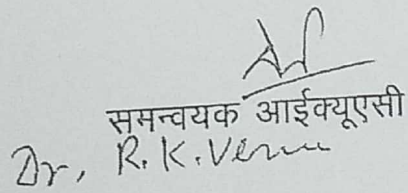 समन्वयक आईक्यूएसी
Dr. R.K. Verma